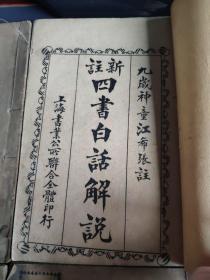 九歲神童江希張註
新註
四書白話解說
上海書業公所聯合全體印行